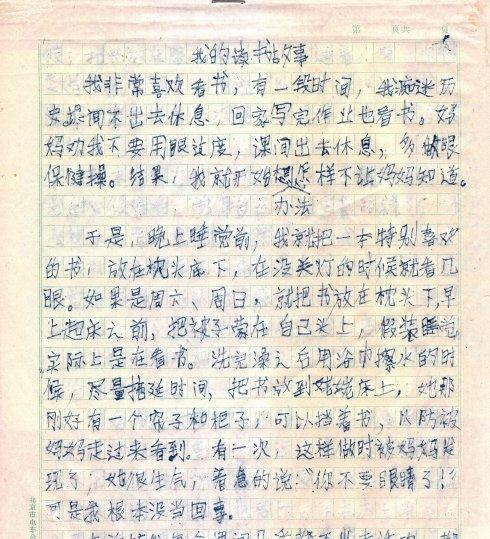 第 页共 页
我的读书故事
我非常喜欢看书，有一段时间，我痴迷历
史，课间不出去休息，回家写完作业也看书。妈
妈劝我不要用眼过度，课间出去休息，多做眼
保健操。结果，我就开始想怎样不让妈妈知道。
办法
于是，晚上睡觉前，我就把一本特别喜欢
的书，放在枕头底下，在没关灯的时候就看几
眼。如果是周六、周日，就把书放在枕头下，早
上起床之前，把被子蒙在自己头上，假装睡觉
实际上是在看书。洗完澡之后用浴巾擦水的时
候，尽量拖延时间，把书放到姥姥床上，她那
刚好有一个帘子和柜子，可以挡着书，以防被
妈妈走过来看到。有一次，这样做时被妈妈发
现了，她很生气，着急的说：“你不要眼睛了！”
可是我根本没当回事。
北京市电车公